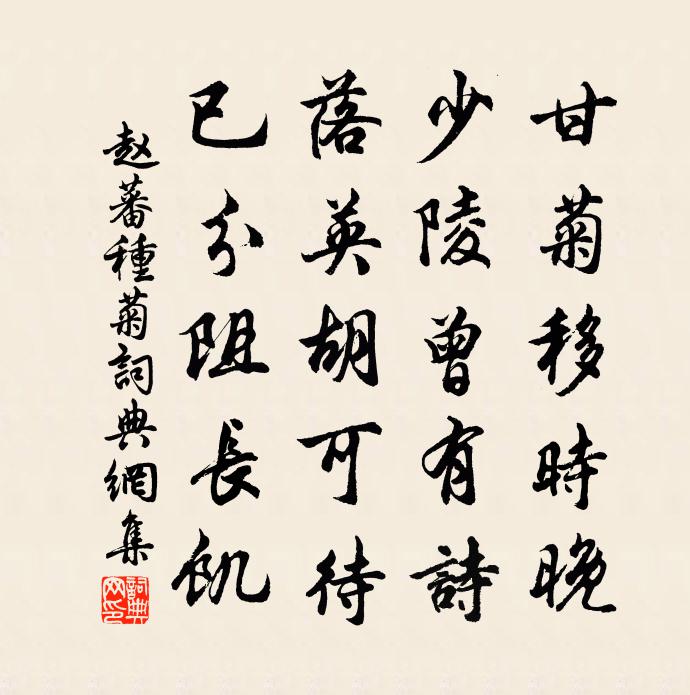 甘菊移時晚
少陵曾有詩
落英胡可待
已分阻長飢
赵蕃種菊詞典網集
詞典網印